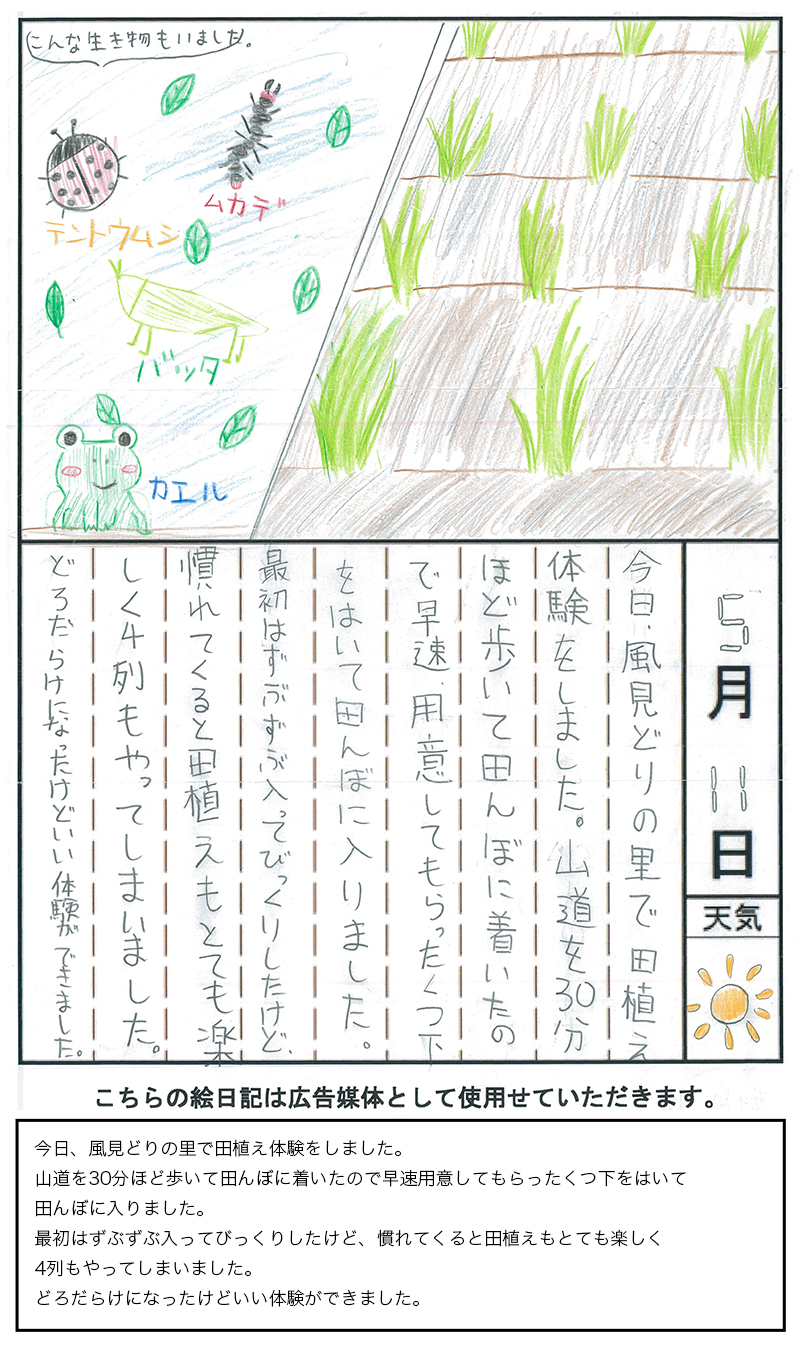 こんな生き物もいました。
ムカデ
テントウムシ
バッタ
カエル
5月11日
天気
今日、風見どりの里で田植え
体験をしました。山道を30分
ほど歩いて田んぼに着いたの
で早速、用意してもらったくつ下
をはいて田んぼに入りました。
最初はずぶずぶ入ってびっくりしたけど、
慣れてくると田植えもとても楽
しく4列もやってしまいました。
どろだらけになったけどいい体験ができました。
こちらの絵日記は広告媒体として使用せていただきます。
今日、風見どりの里で田植え体験をしました。
山道を30分ほど歩いて田んぼに着いたので早速用意してもらったくつ下をはいて
田んぼに入りました。
最初はずぶずぶ入ってびっくりしたけど、慣れてくると田植えもとても楽しく
4列もやってしまいました。
どろだらけになったけどいい体験ができました。